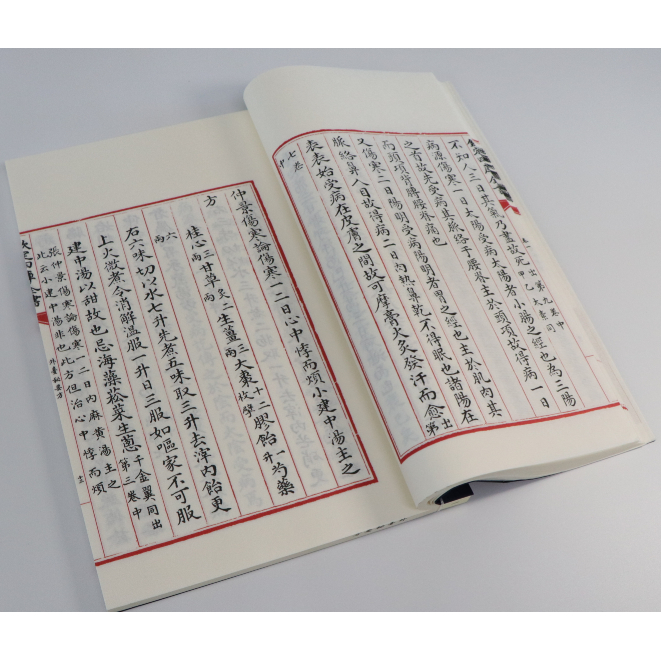 不知人三日其氣乃盡故死
病源傷寒一日太陽受病太陽者小腸之經也為三陽
之首故先受病其脈絡于腰脊主於頭項故得病一日
而頭項背膊腰脊痛也
又傷寒二日陽明受病陽明者胃之經也主於肌肉其
脈絡鼻入目故得病二日肉熱鼻乾不得眠也諸陽在
表表始受病在皮膚之間故可摩膏火灸發汗而愈出第
七卷中
仲景傷寒論傷寒一二日心中悸而煩小建中湯主之
方
桂心三兩甘草二兩炙生薑三兩大棗十二枚擘膠飴一升芍藥
六兩
右六味切以水七升先煮五味取三升去滓内飴更
上火微煮令消解溫服一升日三服如嘔家不可服
建中湯以甜故也忌海藻菘菜生蔥千金翼同出第三卷中
張仲景傷寒論傷寒一二日内麻黃湯主之
此云小建中湯非也此方但治心中悸而煩
四庫全書
外臺秘要方